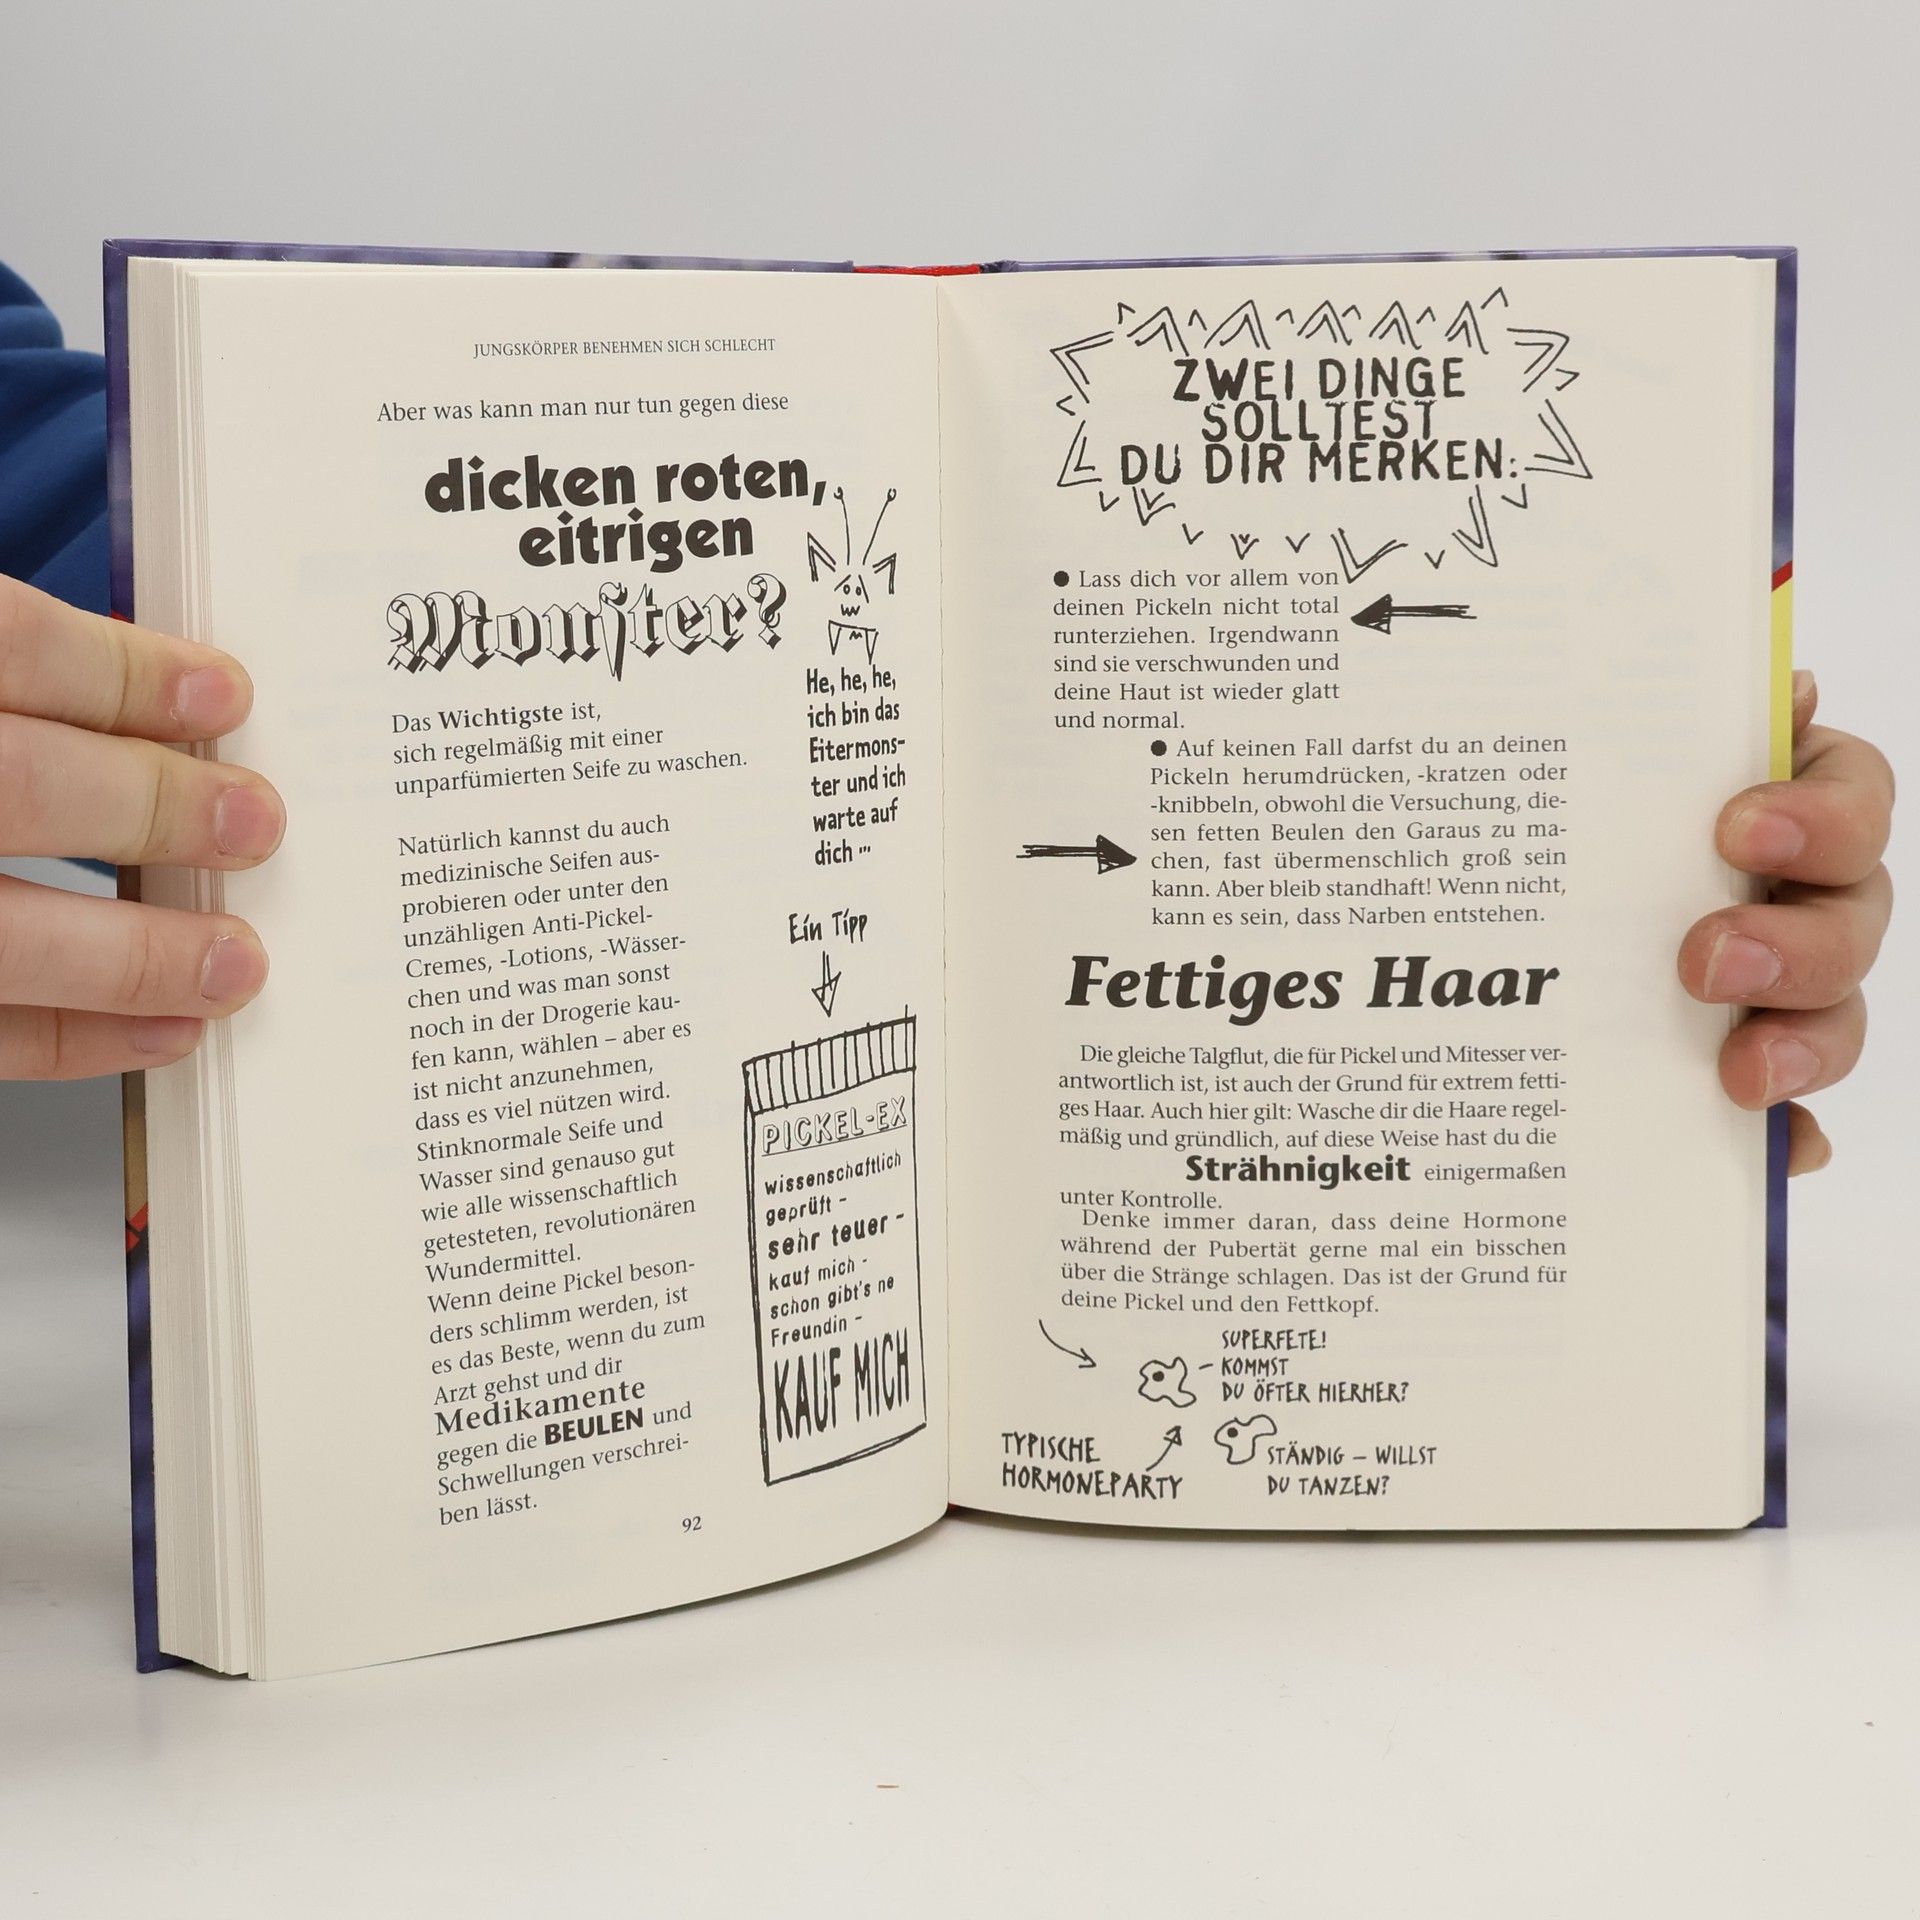 JUNGSKÖRPER BENEHMEN SICH SCHLECHT
Aber was kann man nur tun gegen diese
dicken roten,
eitrigen
Monster?
He, he, he,
ich bin das
Eitermons-
ter und ich
warte auf
dich ...
Das Wichtigste ist,
sich regelmäßig mit einer
unparfümierten Seife zu waschen.
Natürlich kannst du auch
medizinische Seifen aus-
probieren oder unter den
unzähligen Anti-Pickel-
Cremes, -Lotions, -Wässer-
chen und was man sonst
noch in der Drogerie kau-
fen kann, wählen – aber es
ist nicht anzunehmen,
dass es viel nützen wird.
Stinknormale Seife und
Wasser sind genauso gut
wie alle wissenschaftlich
getesteten, revolutionären
Wundermittel.
Wenn deine Pickel beson-
ders schlimm werden, ist
es das Beste, wenn du zum
Arzt gehst und dir
Medikamente
gegen die BEULEN und
Schwellungen verschrei-
ben lässt.
Ein Tipp
PICKEL-EX
wissenschaftlich
geprüft -
sehr teuer -
kauf mich -
schon gibt's ne
Freundin -
KAUF MICH
92
ZWEI DINGE
SOLLTEST
DU DIR MERKEN:
● Lass dich vor allem von
deinen Pickeln nicht total
runterziehen. Irgendwann
sind sie verschwunden und
deine Haut ist wieder glatt
und normal.
● Auf keinen Fall darfst du an deinen
Pickeln herumdrücken, -kratzen oder
-knibbeln, obwohl die Versuchung, die-
sen fetten Beulen den Garaus zu ma-
chen, fast übermenschlich groß sein
kann. Aber bleib standhaft! Wenn nicht,
kann es sein, dass Narben entstehen.
Fettiges Haar
Die gleiche Talgflut, die für Pickel und Mitesser ver-
antwortlich ist, ist auch der Grund für extrem fetti-
ges Haar. Auch hier gilt: Wasche dir die Haare regel-
mäßig und gründlich, auf diese Weise hast du die
Strähnigkeit einigermaßen
unter Kontrolle.
Denke immer daran, dass deine Hormone
während der Pubertät gerne mal ein bisschen
über die Stränge schlagen. Das ist der Grund für
deine Pickel und den Fettkopf.
SUPERFETE!
– KOMMST
DU ÖFTER HIERHER?
TYPISCHE
HORMONEPARTY
STÄNDIG – WILLST
DU TANZEN?